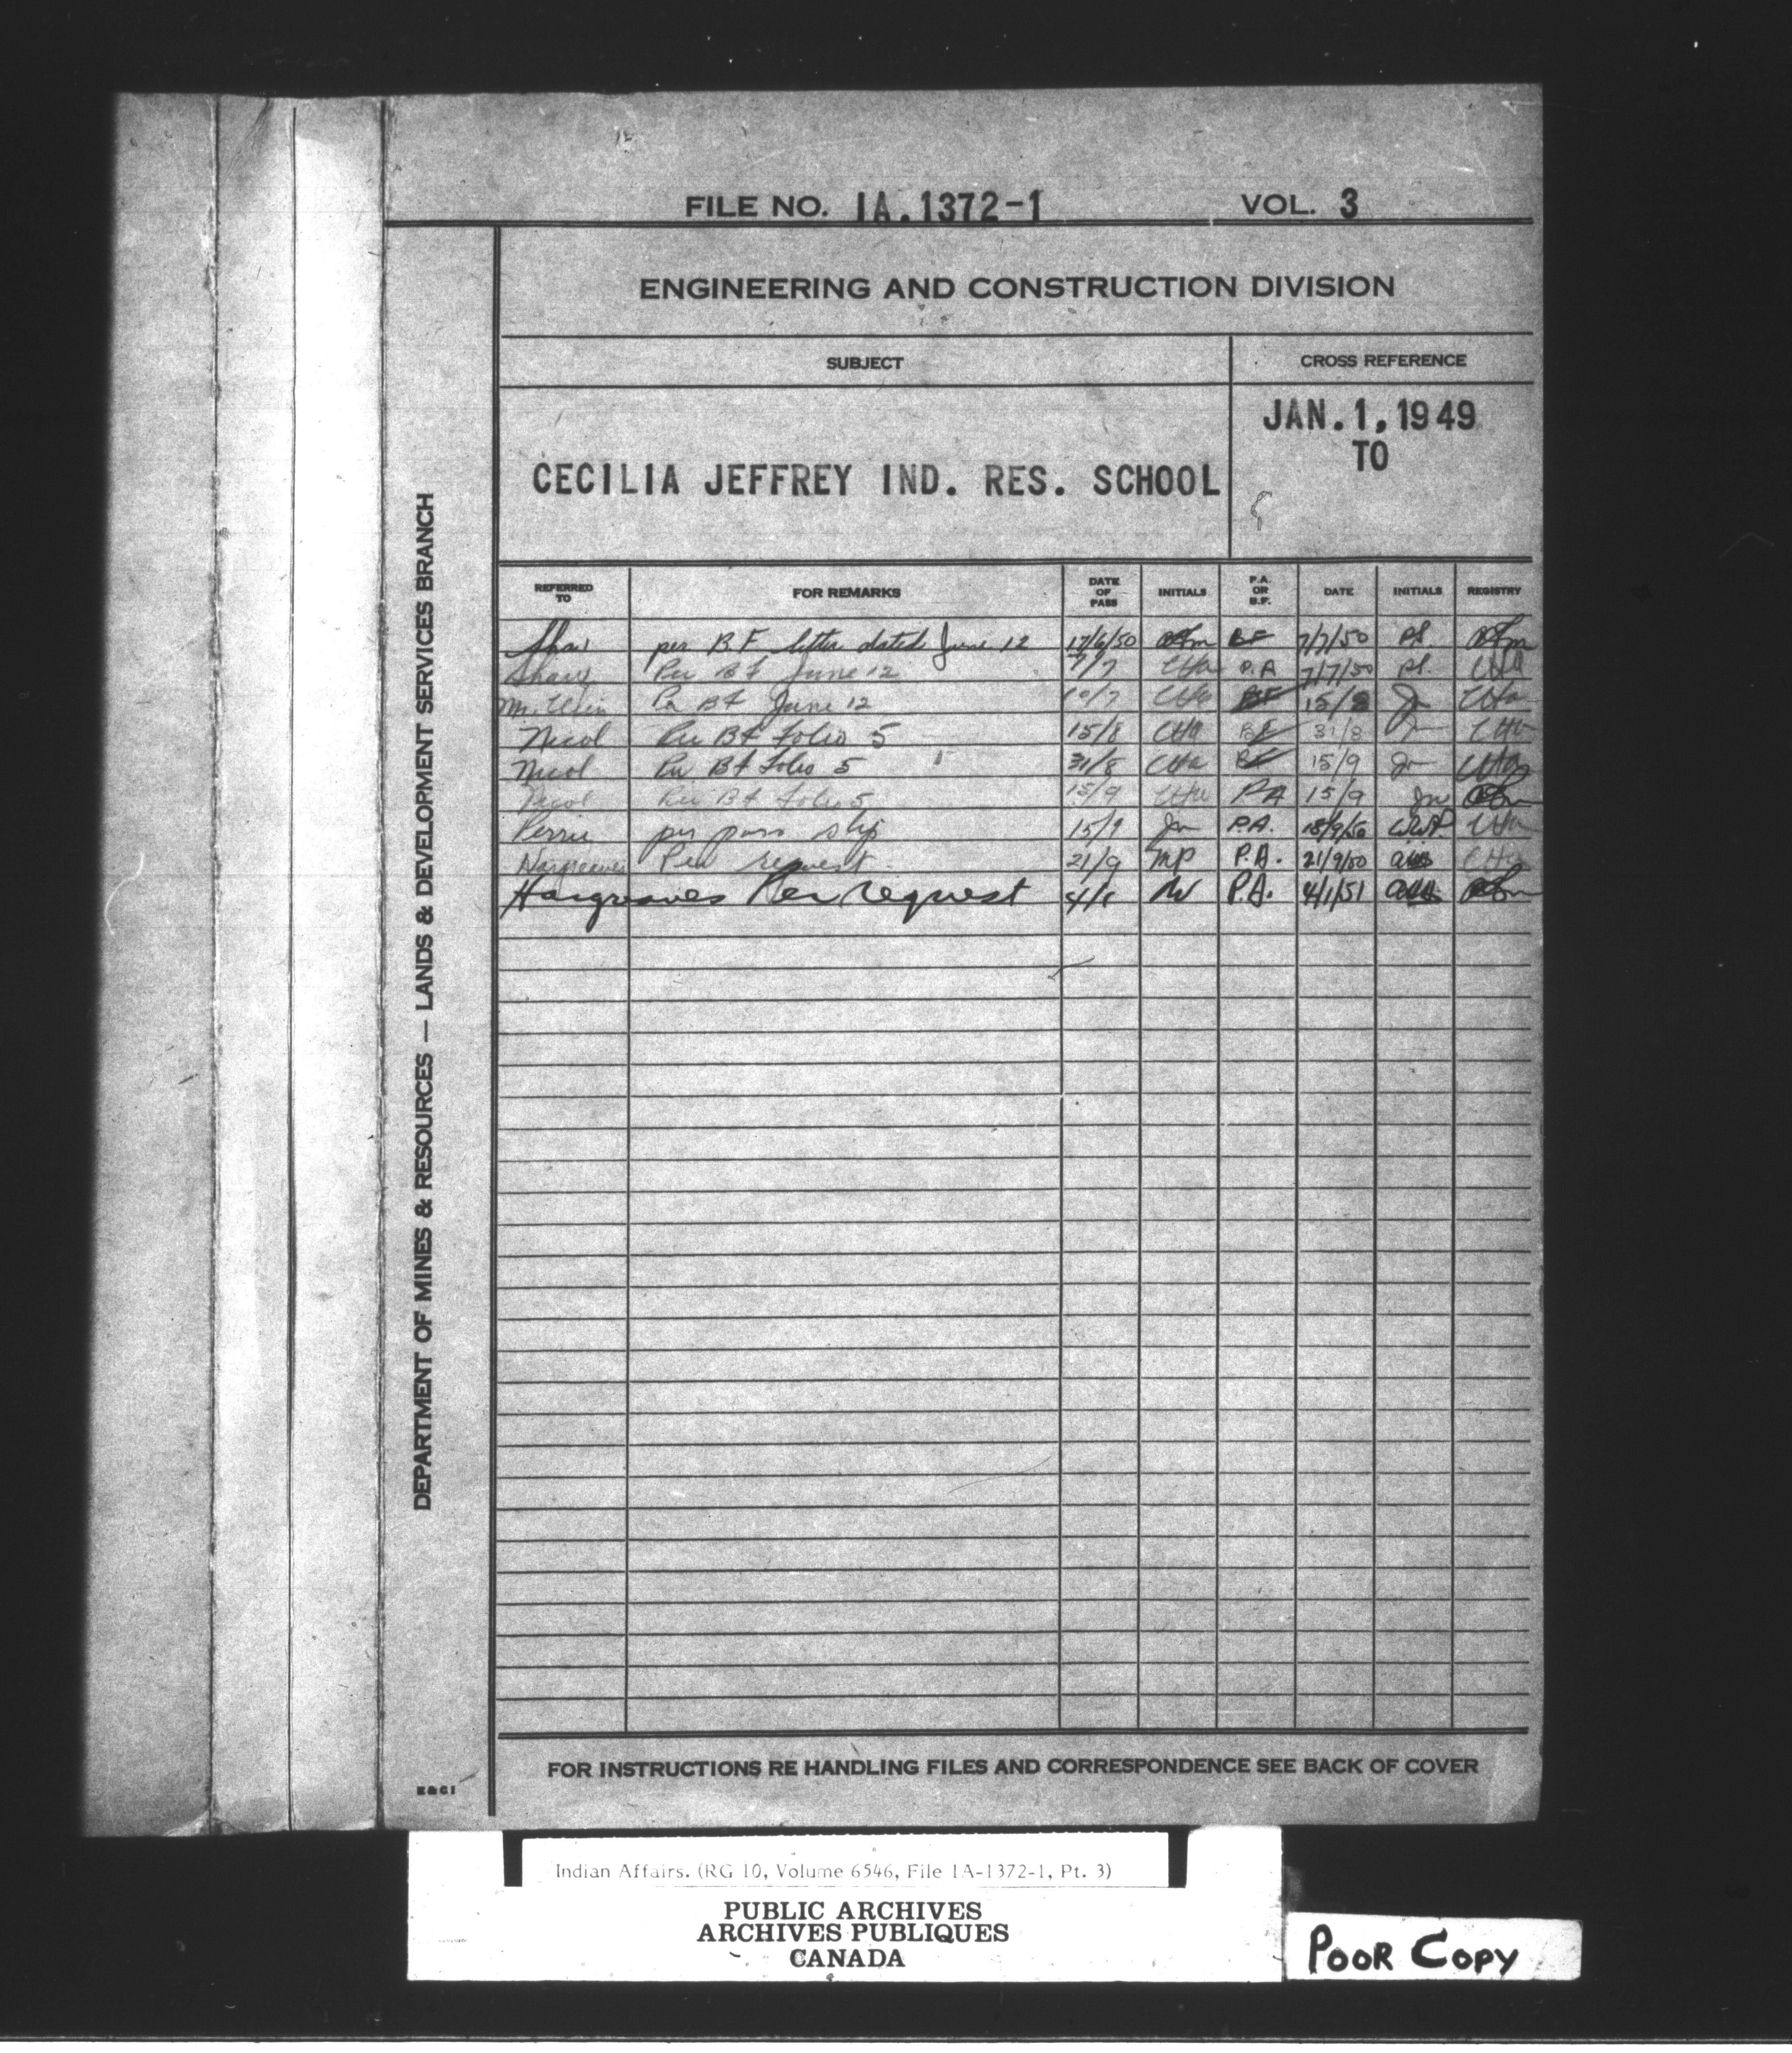 FILE NO. IA.1372-1 VOL. 3
ENGINEERING AND CONSTRUCTION DIVISION
SUBJECT CROSS REFERENCE
CECILIA JEFFREY IND. RES. SCHOOL
JAN. 1, 1949
TO
REFERRED TO FOR REMARKS DATE OF PASS INITIALS P.A. OR B.F. DATE INITIALS REGISTRY
Shaw per B.F letter dated June 12 17/6/50 BF 7/7/50
Shaw Per BF June 12 7/7 P.A 7/7/50
Per BF June 12 10/7 BF 15/8
Nicol Per BF folio 5 15/8 BF 31/8
Nicol Per BF folio 5 31/8 BF 15/9
Nicol Per BF folio 5 15/9 PA 15/9
Perrie per pass slip 15/9 P.A. 18/9/50
Hargreaves Per request 21/9 MP P.A. 21/9/50
Hargreaves Per request 4/1 P.A. 4/1/51
DEPARTMENT OF MINES & RESOURCES — LANDS & DEVELOPMENT SERVICES BRANCH
E & C 1
FOR INSTRUCTIONS RE HANDLING FILES AND CORRESPONDENCE SEE BACK OF COVER
Indian Affairs. (RG 10, Volume 6546, File 1A-1372-1, Pt. 3)
PUBLIC ARCHIVES
ARCHIVES PUBLIQUES
CANADA
POOR COPY